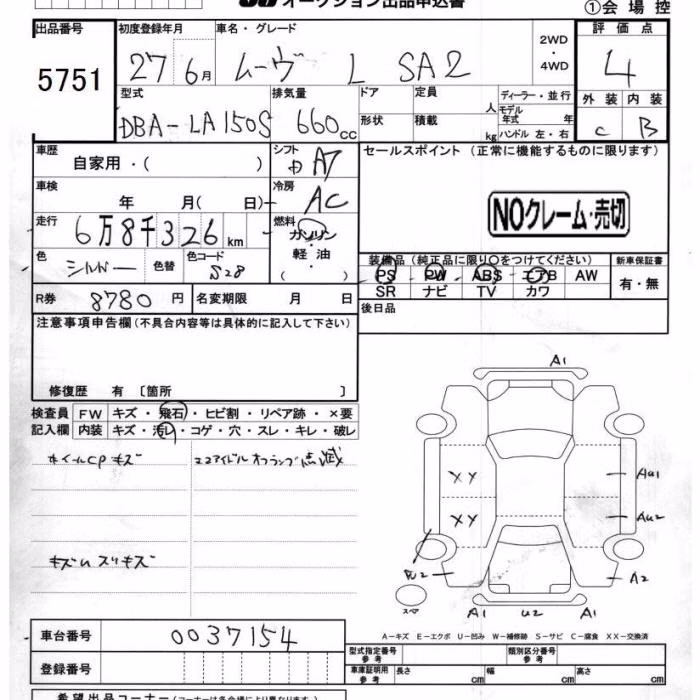 オークション出品申込書
①会場控
出品番号
5751
初度登録年月
27 6月
車名・グレード
ムーヴ L SA2
2WD
・
4WD
評価点
4
外装 内装
C B
型式
DBA-LA150S
排気量
660cc
ドア
形状
定員
人
積載
kg
ディーラー・並行
モデル
年式 年
ハンドル 左・右
車歴
自家用・( )
シフト
AT
車検
年 月( 日)
冷房
AC
走行
6万8千326km
燃料
ガソリン
・
軽油
・
( )
色
シルバー
色替
色コード
S28
R券
8780円
名変期限 月 日
セールスポイント (正常に機能するものに限ります)
NOクレーム・売切
装備品(純正品に限り○をつけてください)
PS PW ABS エアB AW
SR ナビ TV カワ
新車保証書
有・無
後日品
注意事項申告欄(不具合内容等は具体的に記入して下さい)
修復歴 有 〔箇所 〕
検査員
記入欄
FW キズ・飛石・ヒビ割・リペア跡・×要
内装 キズ・汚レ・コゲ・穴・スレ・キレ・破レ
ホイールCPキズ
エコアイドルオフランプ点滅
キズ凹スリキズ
A1
XX
AU1
XX
AU2
A2
スペ
A1 U2 A1
A-キズ E-エクボ U-凹み W-補修跡 S-サビ C-腐食 XX-交換済
車台番号
0037154
登録番号
型式指定番号
参考
類別区分番号
参考
車庫証明用
参考
長さ cm 幅 cm 高さ cm
希望出品コーナー